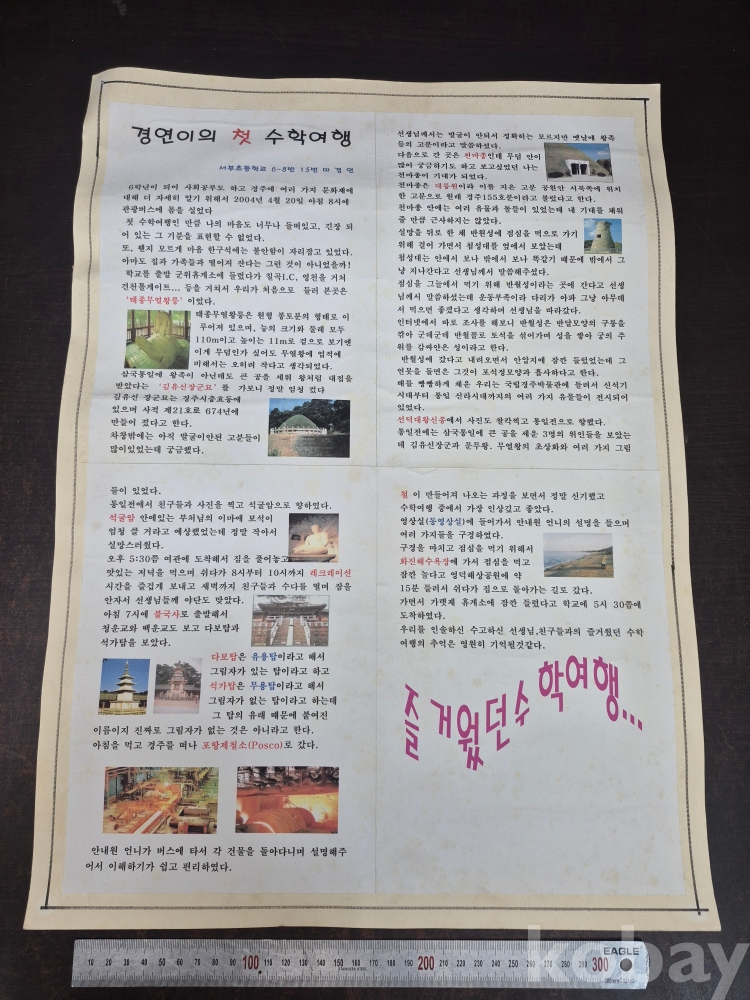 경연이의 첫 수학여행
서부초등학교 6-8반 15번 이경연
6학년이 되어 사회공부도 하고 경주에 여러 가지 문화재에
대해 더 자세히 알기 위해서 2004년 4월 20일 아침 8시에
관광버스에 몸을 실었다
첫 수학여행인 만큼 나의 마음도 너무나 들떠있고, 긴장 되
어 있는 그 기분을 표현할 수 없었다.
또, 왠지 모르게 마음 한구석에는 불안함이 자리잡고 있었다.
아마도 집과 가족들과 떨어져 잔다는 그런 것이 아니었을까!
학교를 출발 군위휴게소에 들렸다가 칠곡I.C, 영천을 거쳐
건천톨게이트... 등을 거쳐서 우리가 처음으로 들러 본곳은
'태종무열왕릉' 이었다.
태종무열왕릉은 원형 봉토분의 형태로 이
루어져 있으며, 능의 크기와 둘레 모두
110m이고 높이는 11m로 겉으로 보기엔
이게 무덤인가 싶어도 무열왕에 업적에
비해서는 오히려 작다고 생각되었다.
삼국통일에 왕족이 아닌데도 큰 공을 세워 왕처럼 대접을
받았다는 '김유신장군묘' 를 가보니 정말 엄청 컸다
김유신 장군묘는 경주시충효동에
있으며 사적 제21호로 674년에
만들어 졌다고 한다.
차창밖에는 아직 발굴이안된 고분들이
많이있었는데 궁금했다.
선생님께서는 발굴이 안되서 정확히는 모르지만 옛날에 왕족
들의 고분이라고 말씀하셨다.
다음으로 간 곳은 천마총인데 무덤 안이
많이 궁금하기도 하고 보고싶었던 나는
천마총이 기대가 되었다.
천마총은 대릉원이라 이름 지은 고분 공원안 서북쪽에 위치
한 고분으로 원래 경주155호분이라고 불렀다고 한다.
천마총 안에는 여러 유물과 돌들이 있었는데 내 기대를 채워
줄 만큼 근사하지는 않았다.
실망을 뒤로 한 채 반월성에 점심을 먹으로 가기
위해 걸어 가면서 첨성대를 옆에서 보았는데
첨성대는 안에서 보나 밖에서 보나 똑같기 때문에 밖에서 그
냥 지나간다고 선생님께서 말씀해주셨다.
점심을 그늘에서 먹기 위해 반월성이라는 곳에 간다고 선생
님께서 말씀하셨는데 운동부족이라 다리가 아파 그냥 아무데
서 먹으면 좋겠다고 생각하며 선생님을 따라갔다.
인터넷에서 따로 조사를 해보니 반월성은 반달모양의 구릉을
깎아 군데군데 반월꼴로 토석을 섞어가며 성을 쌓아 궁의 주
위를 감싸안은 성이라고 한다.
반월성에 갔다고 내려오면서 안압지에 잠깐 들렸었는데 그
연못을 들면은 그것이 포석정모양과 흡사하다고 한다.
배를 빵빵하게 채운 우리는 국립경주박물관에 들러서 신석기
시대부터 통일 신라시대까지의 여러 가지 유물들이 전시되어
있었다.
선덕대왕신종에서 사진도 찰칵찍고 통일전으로 향했다.
통일전에는 삼국통일에 큰 공을 세운 3명의 위인들을 보았는
데 김유신장군과 문무왕, 무열왕의 초상화와 여러 가지 그림
들이 있었다.
통일전에서 친구들과 사진을 찍고 석굴암으로 향하였다.
석굴암 안에있는 부처님의 이마에 보석이
엄청 클 거라고 예상했었는데 정말 작아서
실망스러웠다.
오후 5:30쯤 여관에 도착해서 짐을 풀어놓고
맛있는 저녁을 먹으며 쉬다가 8시부터 10시까지 레크레이션
시간을 즐겁게 보내고 새벽까지 친구들과 수다를 떨며 잠을
안자서 선생님들께 야단도 맞았다.
아침 7시에 불국사로 출발해서
청운교와 백운교도 보고 다보탑과
석가탑을 보았다.
다보탑은 유용탑이라고 해서
그림자가 있는 탑이라고 하고
석가탑은 무용탑이라고 해서
그림자가 없는 탑이라고 하는데
그 탑의 유래 때문에 붙여진
이름이지 진짜로 그림자가 없는 것은 아니라고 한다.
아침을 먹고 경주를 떠나 포항제철소(Posco)로 갔다.
안내원 언니가 버스에 타서 각 건물을 돌아다니며 설명해주
어서 이해하기가 쉽고 편리하였다.
철 이 만들어져 나오는 과정을 보면서 정말 신기했고
수학여행 중에서 가장 인상깊고 좋았다.
영상실(동영상실)에 들어가서 안내원 언니의 설명을 들으며
여러 가지들을 구경하였다.
구경을 마치고 점심을 먹기 위해서
화진해수욕장에 가서 점심을 먹고
잠깐 놀다고 영덕해상공원에 약
15분 들러서 쉬다가 집으로 돌아가는 길로 갔다.
가면서 가랫재 휴게소에 잠깐 들렸다고 학교에 5시 30쯤에
도착하였다.
우리를 인솔하신 수고하신 선생님,친구들과의 즐거웠던 수학
여행의 추억은 영원히 기억될것같다.
즐거웠던수학여행...
kobay
EAGLE
10 20 30 40 50 60 70 80 90 100 110 120 130 140 150 160 170 180 190 200 210 220 230 240 250 260 270 280 290 300
STAINLESS STEEL